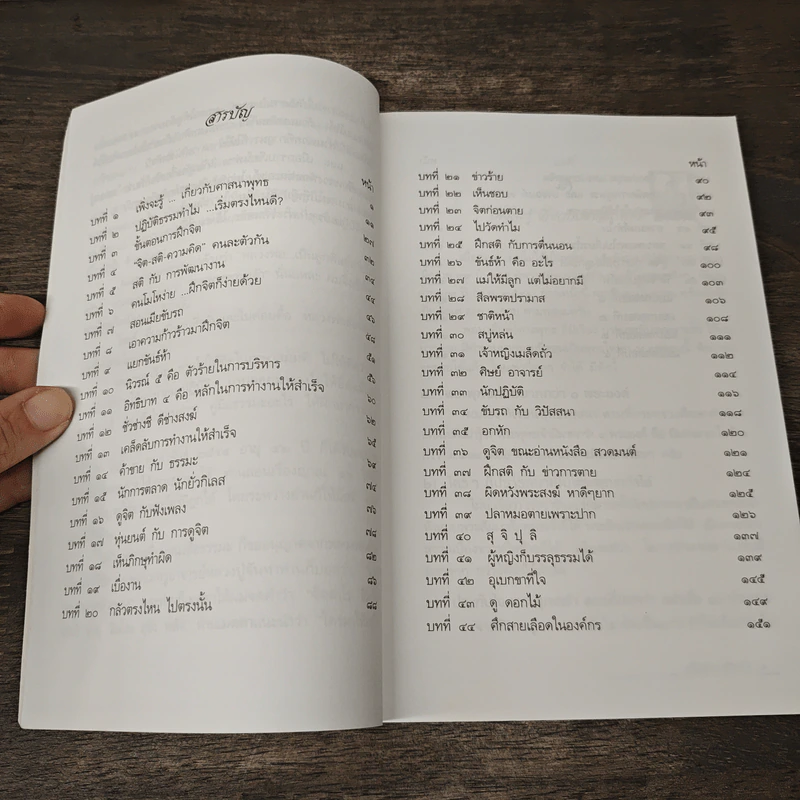 สารบัญ
หน้า
บทที่ ๑ เพิ่งจะรู้ ... เกี่ยวกับศาสนาพุทธ ๑
บทที่ ๒ ปฏิบัติธรรมทำไม ...เริ่มตรงไหนดี? ๑๑
บทที่ ๓ ขั้นตอนการฝึกจิต ๒๗
บทที่ ๔ "จิต-สติ-ความคิด" คนละตัวกัน ๓๒
บทที่ ๕ สติ กับ การพัฒนางาน ๓๔
บทที่ ๖ คนโมโหง่าย ...ฝึกจิตก็ง่ายด้วย ๔๔
บทที่ ๗ สอนเมียขับรถ ๔๖
บทที่ ๘ เอาความก้าวร้าวมาฝึกจิต ๔๘
บทที่ ๙ แยกขันธ์ห้า ๕๑
บทที่ ๑๐ นิวรณ์ ๕ คือ ตัวร้ายในการบริหาร ๕๖
บทที่ ๑๑ อิทธิบาท ๔ คือ หลักในการทำงานให้สำเร็จ ๖๐
บทที่ ๑๒ ชั่วช่างชี ดีช่างสงฆ์ ๖๒
บทที่ ๑๓ เคล็ดลับการทำงานให้สำเร็จ ๖๕
บทที่ ๑๔ ค้าขาย กับ ธรรมะ ๖๙
บทที่ ๑๕ นักการตลาด นักยั่วกิเลส ๗๔
บทที่ ๑๖ ดูจิต กับฟังเพลง ๗๖
บทที่ ๑๗ หุ่นยนต์ กับ การดูจิต ๗๘
บทที่ ๑๘ เห็นภิกษุทำผิด ๘๒
บทที่ ๑๙ เบื่องาน ๘๖
บทที่ ๒๐ กลัวตรงไหน ไปตรงนั้น ๘๘
หน้า
บทที่ ๒๑ ข่าวร้าย ๙๐
บทที่ ๒๒ เห็นชอบ ๙๒
บทที่ ๒๓ จิตก่อนตาย ๙๓
บทที่ ๒๔ ไปวัดทำไม ๙๕
บทที่ ๒๕ ฝึกสติ กับการตื่นนอน ๙๘
บทที่ ๒๖ ขันธ์ห้า คือ อะไร ๑๐๐
บทที่ ๒๗ แม่ให้มีลูก แต่ไม่อยากมี ๑๐๓
บทที่ ๒๘ สีลพรตปรามาส ๑๐๖
บทที่ ๒๙ ชาติหน้า ๑๐๘
บทที่ ๓๐ สบู่หล่น ๑๑๑
บทที่ ๓๑ เจ้าหญิงเมล็ดถั่ว ๑๑๒
บทที่ ๓๒ ศิษย์ อาจารย์ ๑๑๔
บทที่ ๓๓ นักปฏิบัติ ๑๑๖
บทที่ ๓๔ ขับรถ กับ วิปัสสนา ๑๑๘
บทที่ ๓๕ อกหัก ๑๒๐
บทที่ ๓๖ ดูจิต ขณะอ่านหนังสือ สวดมนต์ ๑๒๑
บทที่ ๓๗ ฝึกสติ กับ ข่าวการตาย ๑๒๔
บทที่ ๓๘ ผิดหวังพระสงฆ์ หาดีๆยาก ๑๒๕
บทที่ ๓๙ ปลาหมอตายเพราะปาก ๑๒๖
บทที่ ๔๐ สุ จิ ปุ ลิ ๑๓๗
บทที่ ๔๑ ผู้หญิงก็บรรลุธรรมได้ ๑๓๙
บทที่ ๔๒ อุเบกขาที่ใจ ๑๔๕
บทที่ ๔๓ ดู ดอกไม้ ๑๔๙
บทที่ ๔๔ ศึกสายเลือดในองค์กร ๑๕๑